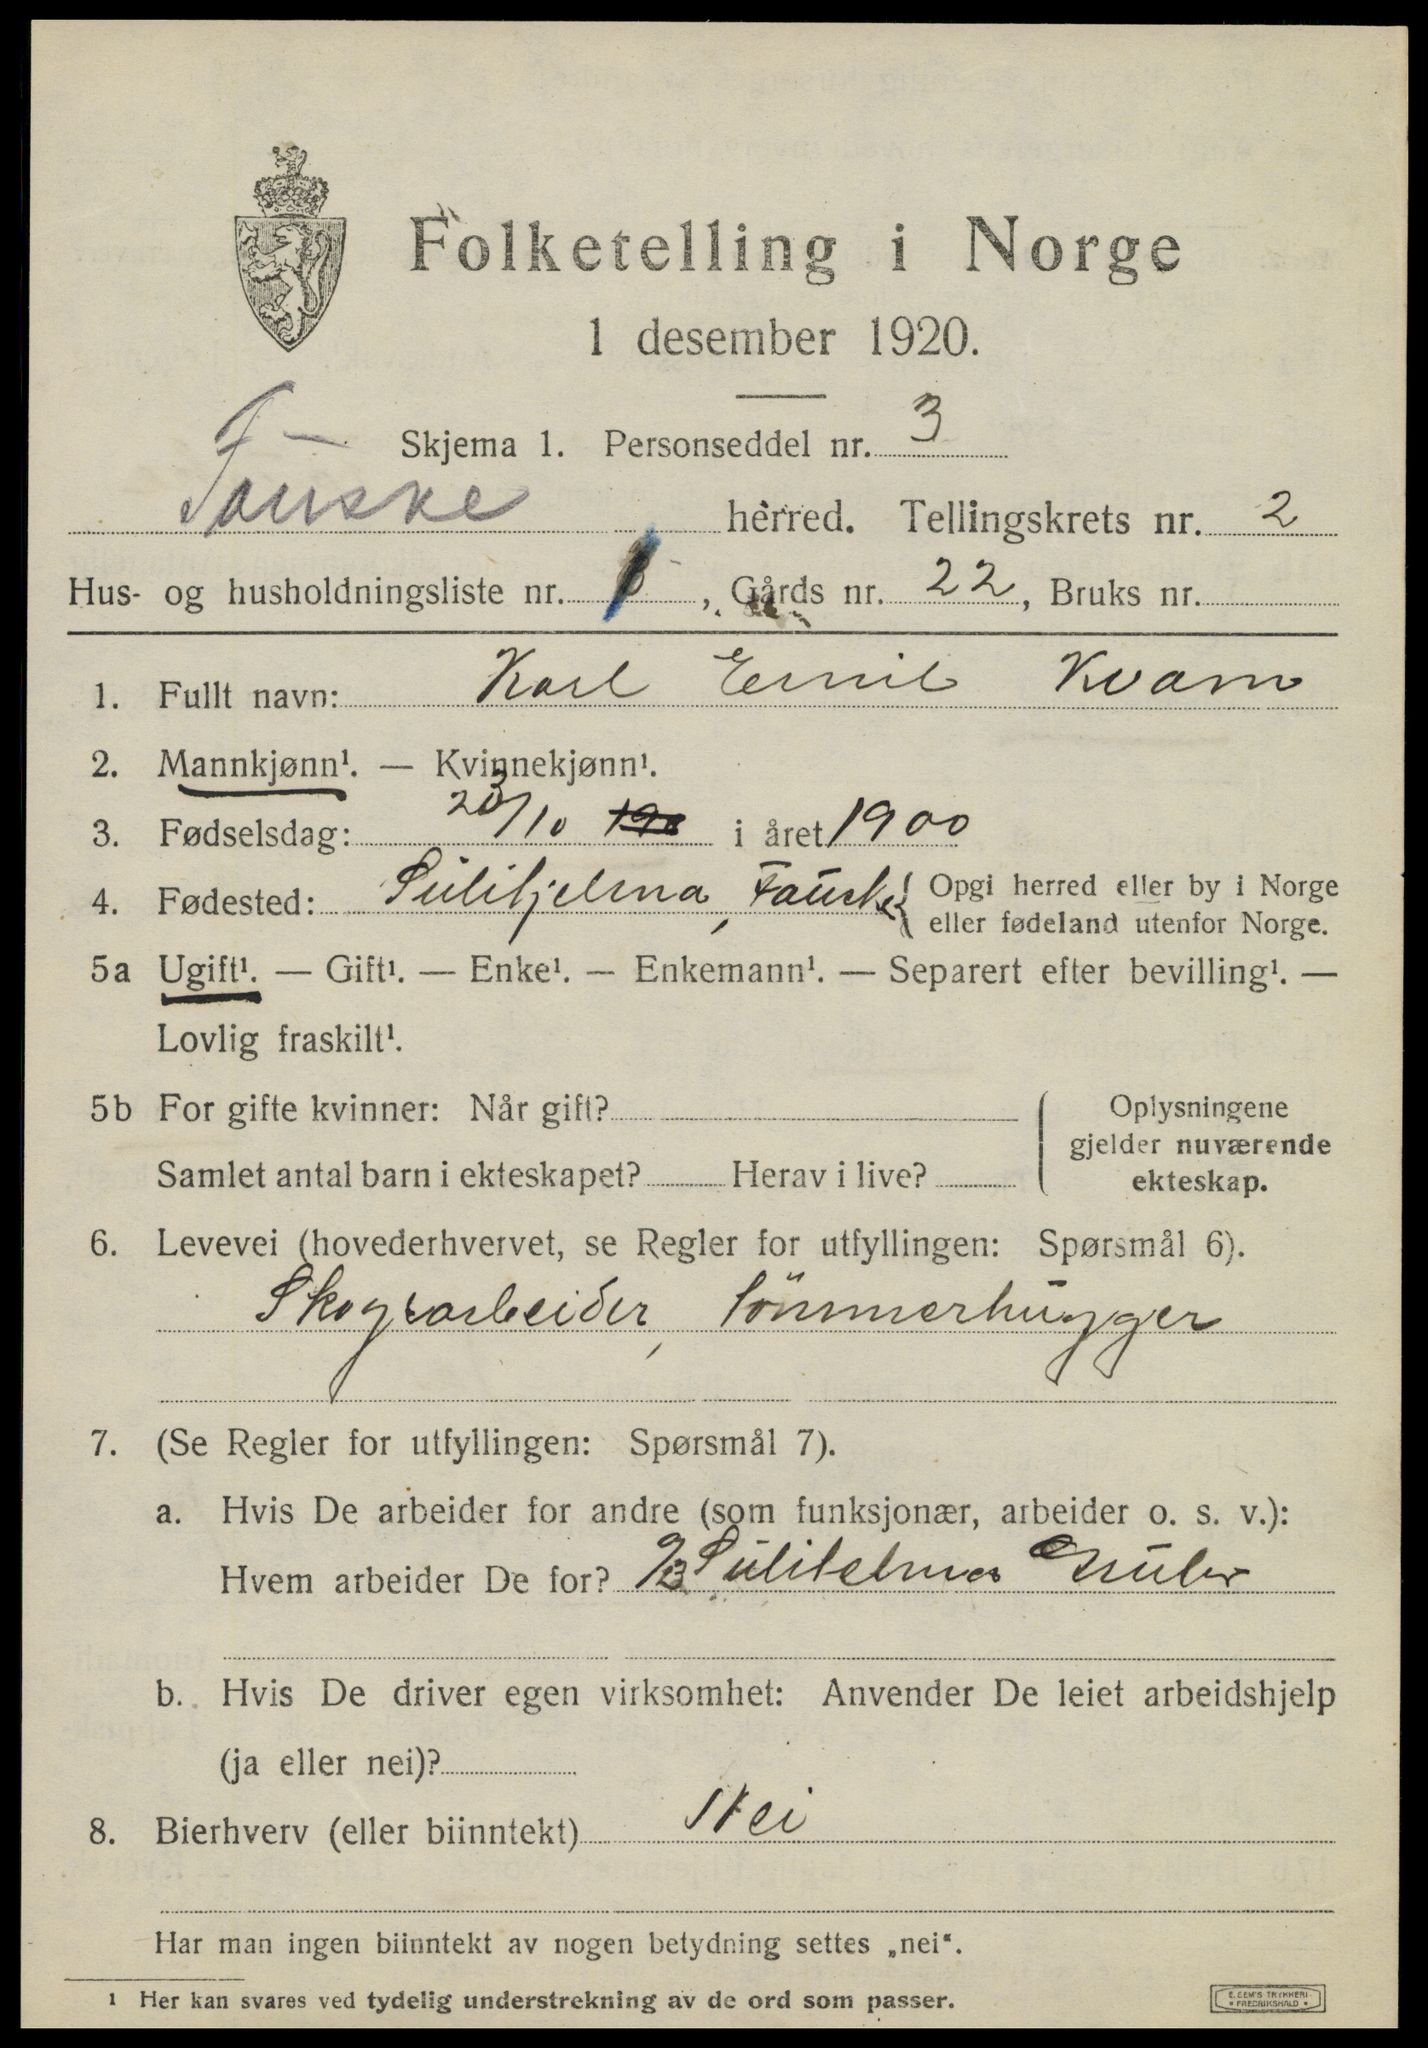 Folketelling i Norge
1 desember 1920.
Skjema 1. Personseddel nr. 3
Fauske herred. Tellingskrets nr. 2
Hus- og husholdningsliste nr. , Gårds nr. 22, Bruks nr.
1. Fullt navn: Karl Emil Kvam
2. Mannkjønn¹. — Kvinnekjønn¹.
3. Fødselsdag: 23/10 190 i året 1900
4. Fødested: Sulitjelma, Fauske { Opgi herred eller by i Norge
eller fødeland utenfor Norge.
5a Ugift¹. — Gift¹. — Enke¹. — Enkemann¹. — Separert efter bevilling¹. —
Lovlig fraskilt¹.
5b For gifte kvinner: Når gift? Oplysningene
gjelder nuværende
Samlet antal barn i ekteskapet? Herav i live? ekteskap.
6. Levevei (hovederhvervet, se Regler for utfyllingen: Spørsmål 6).
Skogsarbeider, tömmerhugger
7. (Se Regler for utfyllingen: Spørsmål 7).
a. Hvis De arbeider for andre (som funksjonær, arbeider o. s. v.):
Hvem arbeider De for? Sulitelma Gruber
b. Hvis De driver egen virksomhet: Anvender De leiet arbeidshjelp
(ja eller nei)?
8. Bierhverv (eller biinntekt) Nei
Har man ingen biinntekt av nogen betydning settes „nei“.
1 Her kan svares ved tydelig understrekning av de ord som passer.
E. SEM'S TRYKKERI
• FREDRIKSHALD •